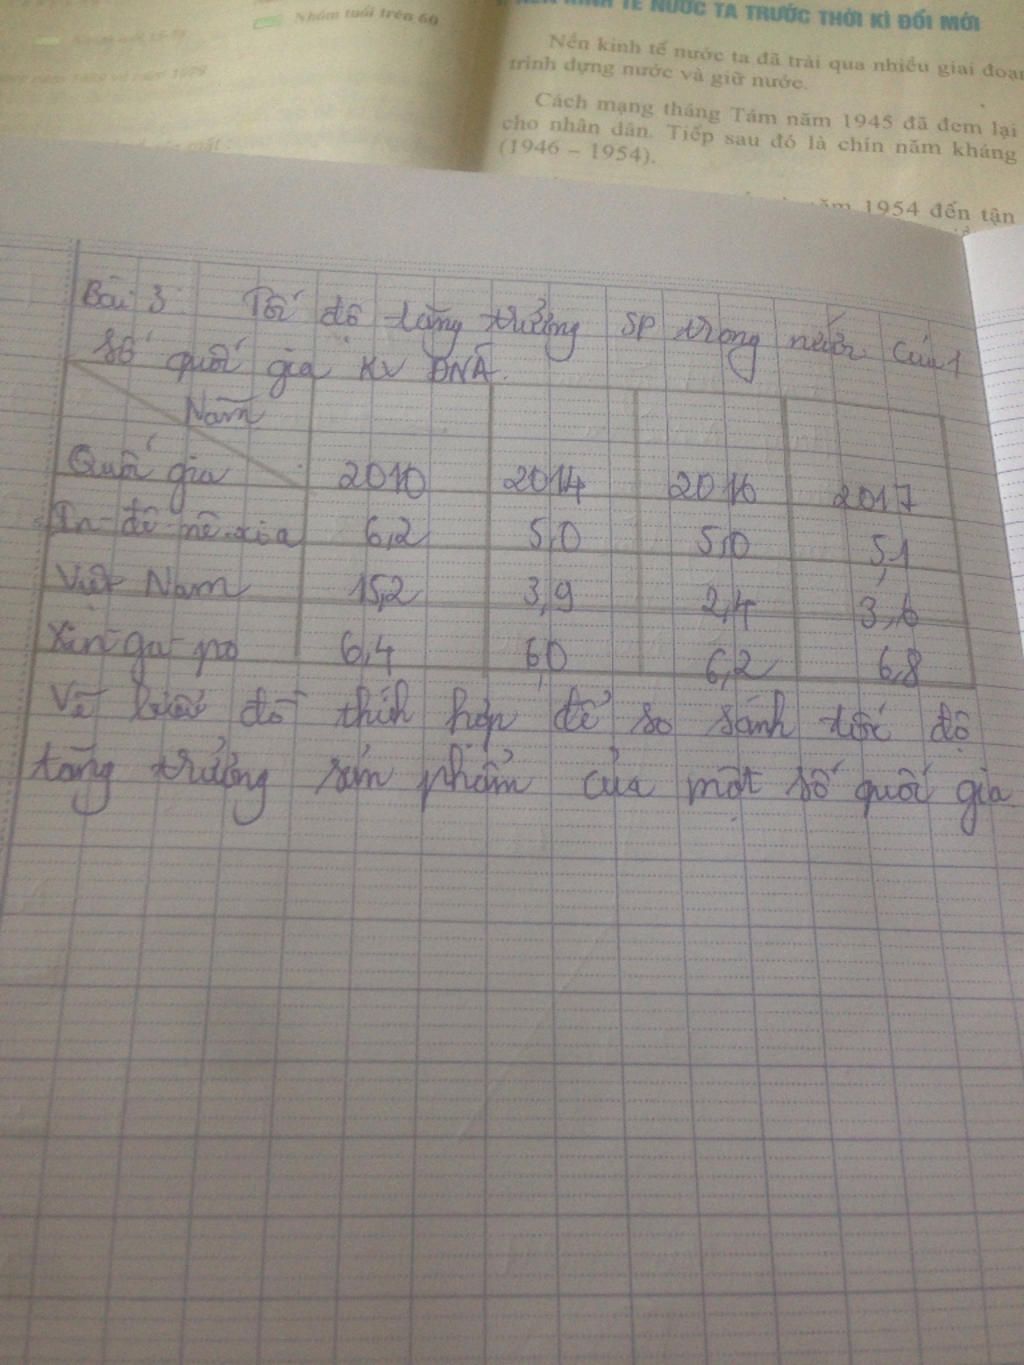 Nhóm tuổi trên 60
NỀN KINH TẾ NƯỚC TA TRƯỚC THỜI KÌ ĐỔI MỚI
Nền kinh tế nước ta đã trải qua nhiều giai đoạn
trình dựng nước và giữ nước.
Cách mạng tháng Tám năm 1945 đã đem lại
cho nhân dân. Tiếp sau đó là chín năm kháng
(1946 – 1954).
năm 1954 đến tận
Bài 3: Tốc độ tăng trưởng SP trong nước của 1
số quốc gia KV ĐNÁ.
Năm
Quốc gia 2010 2014 2016 2017
In-đô-nê-xi-a 6,2 5,0 5,0 5,1
Việt Nam 15,2 3,9 2,4 3,6
Xin-ga-po 6,4 6,0 6,2 6,8
Vẽ biểu đồ thích hợp để so sánh tốc độ
tăng trưởng sản phẩm của một số quốc gia